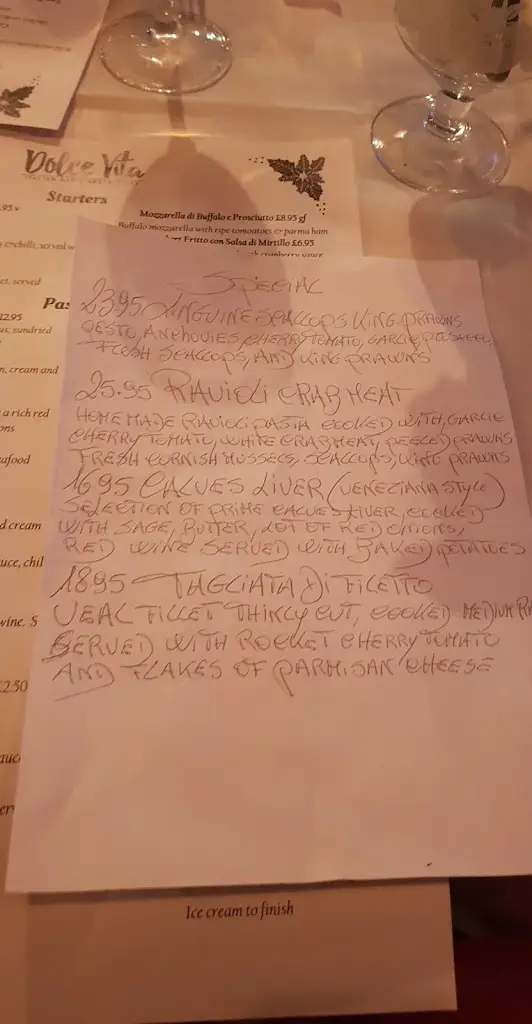 Dolce Vita
Starters
Mozzarella di Buffalo e Prosciutto £8.95 gf
Buffalo mozzarella with ripe tomatoes & parma ham
Fritto con Salsa di Mirtillo £6.95
cranberry sauce
.95 v
& chilli, served w
et, served
Pas
12.95
us, sundried
n, cream and
a rich red
ons
eafood
d cream
uce, chil
wine. S
£2.50
auce
SPECIAL
23.95 LINGUINE SCALLOPS KING PRAWNS
PESTO, ANCHOVIES, CHERRY TOMATO, GARLIC,
FRESH SCALLOPS, AND KING PRAWNS
25.95 RAVIOLI CRABMEAT
HOMEMADE RAVIOLI PASTA COOKED WITH, GARLIC
CHERRY TOMATO, WHITE CRABMEAT, PEELED PRAWNS
FRESH CORNISH MUSSELS, SCALLOPS, KING PRAWNS
16.95 CALVES LIVER (VENEZIANA STYLE)
SELECTION OF PRIME CALVES LIVER, COOKED
WITH SAGE, BUTTER, LOT OF RED ONIONS,
RED WINE SERVED WITH BAKED POTATOES
18.95 TAGLIATA DI FILETTO
VEAL FILLET THINLY CUT, COOKED MEDIUM RA
SERVED WITH ROCKET CHERRY TOMATO
AND FLAKES OF PARMISAN CHEESE
Ice cream to finish